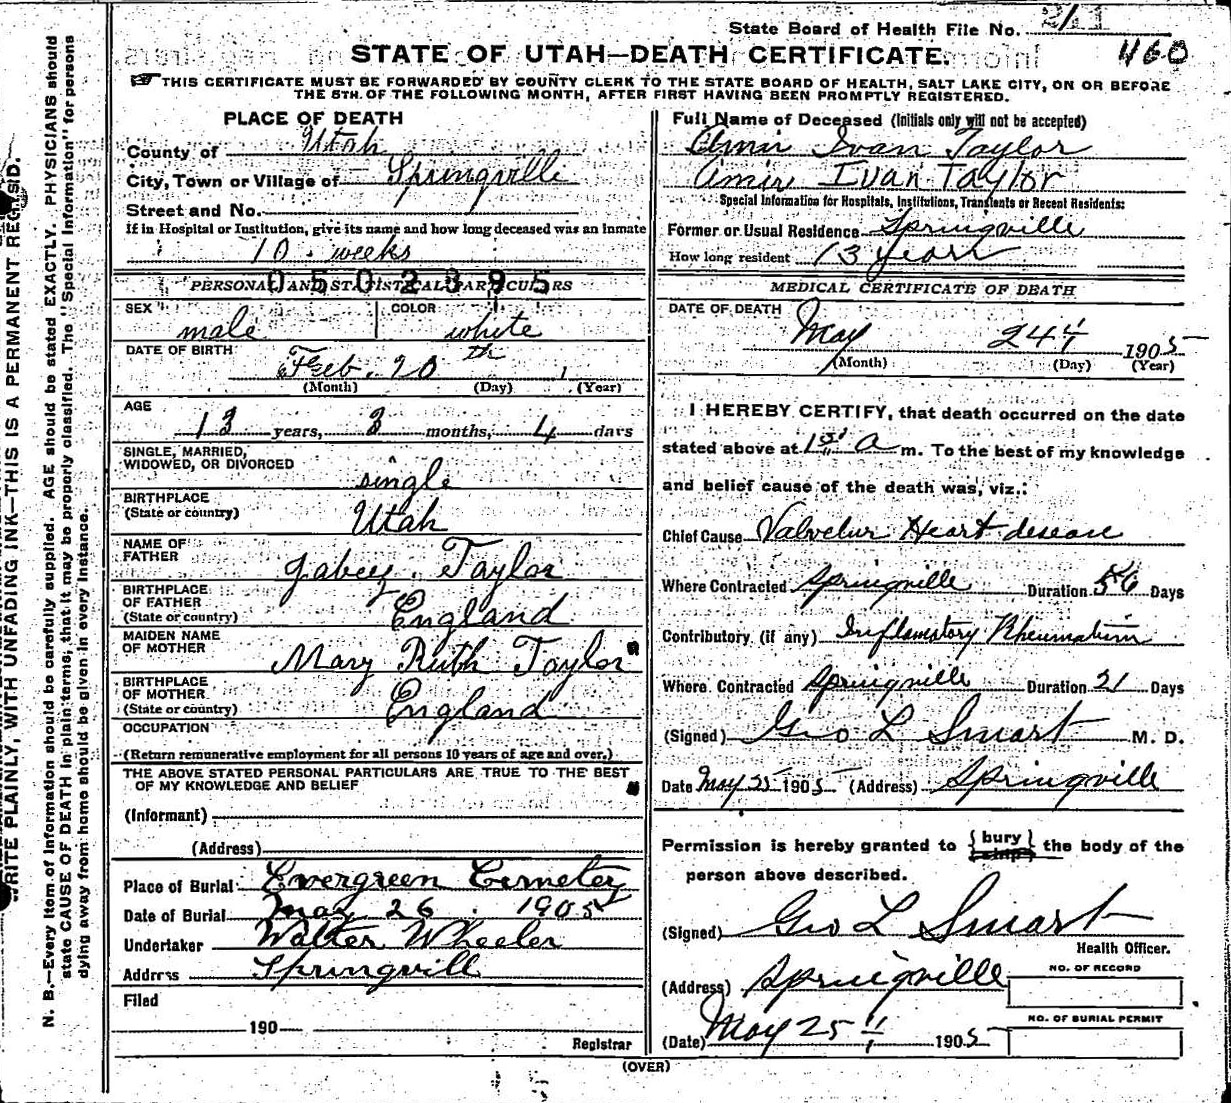 State Board of Health File No. 2/11
STATE OF UTAH—DEATH CERTIFICATE.
460
THIS CERTIFICATE MUST BE FORWARDED BY COUNTY CLERK TO THE STATE BOARD OF HEALTH, SALT LAKE CITY, ON OR BEFORE
THE 5TH. OF THE FOLLOWING MONTH, AFTER FIRST HAVING BEEN PROMPTLY REGISTERED.
PLACE OF DEATH
County of Utah
City, Town or Village of Springville
Street and No.
If in Hospital or Institution, give its name and how long deceased was an Inmate
10 weeks
0502895
PERSONAL AND STATISTICAL PARTICULARS
SEX male COLOR white
DATE OF BIRTH Feb. 20th
(Month) (Day) (Year)
AGE
13 years, 3 months, 4 days
SINGLE, MARRIED,
WIDOWED, OR DIVORCED single
BIRTHPLACE
(State or country) Utah
NAME OF
FATHER Jabez Taylor
BIRTHPLACE
OF FATHER
(State or country) England
MAIDEN NAME
OF MOTHER Mary Ruth Taylor
BIRTHPLACE
OF MOTHER
(State or country) England
OCCUPATION
(Return remunerative employment for all persons 10 years of age and over.)
THE ABOVE STATED PERSONAL PARTICULARS ARE TRUE TO THE BEST
OF MY KNOWLEDGE AND BELIEF
(Informant)
(Address)
Place of Burial Evergreen Cemetery
Date of Burial May 26 1905
Undertaker Walter Wheeler
Address Springvill
Filed
190
Registrar
Full Name of Deceased (Initials only will not be accepted)
Amir Ivan Taylor
Amir Ivan Taylor
Special Information for Hospitals, Institutions, Transients or Recent Residents:
Former or Usual Residence Springville
How long resident 13 years
MEDICAL CERTIFICATE OF DEATH
DATE OF DEATH
May 24 1905
(Month) (Day) (Year)
I HEREBY CERTIFY, that death occurred on the date
stated above at a m. To the best of my knowledge
and belief cause of the death was, viz.:
Chief Cause Valvelur Heart desease
Where Contracted Springville Duration 56 Days
Contributory (if any) Inflamatory Rheumatism
Where Contracted Springville Duration 21 Days
(Signed) Geo L Smart M. D.
Date May 25 1905 (Address) Springville
Permission is hereby granted to { bury ship } the body of the
person above described.
(Signed) Geo L Smart
Health Officer.
(Address) Springville
NO. OF RECORD
NO. OF BURIAL PERMIT
(Date) May 25 1905
(OVER)
N. B.—Every item of information should be carefully supplied. AGE should be stated EXACTLY. PHYSICIANS should
state CAUSE OF DEATH in plain terms, that it may be properly classified. The "Special Information" for persons
dying away from home should be given in every instance.
WRITE PLAINLY, WITH UNFADING INK—THIS IS A PERMANENT RECORD.